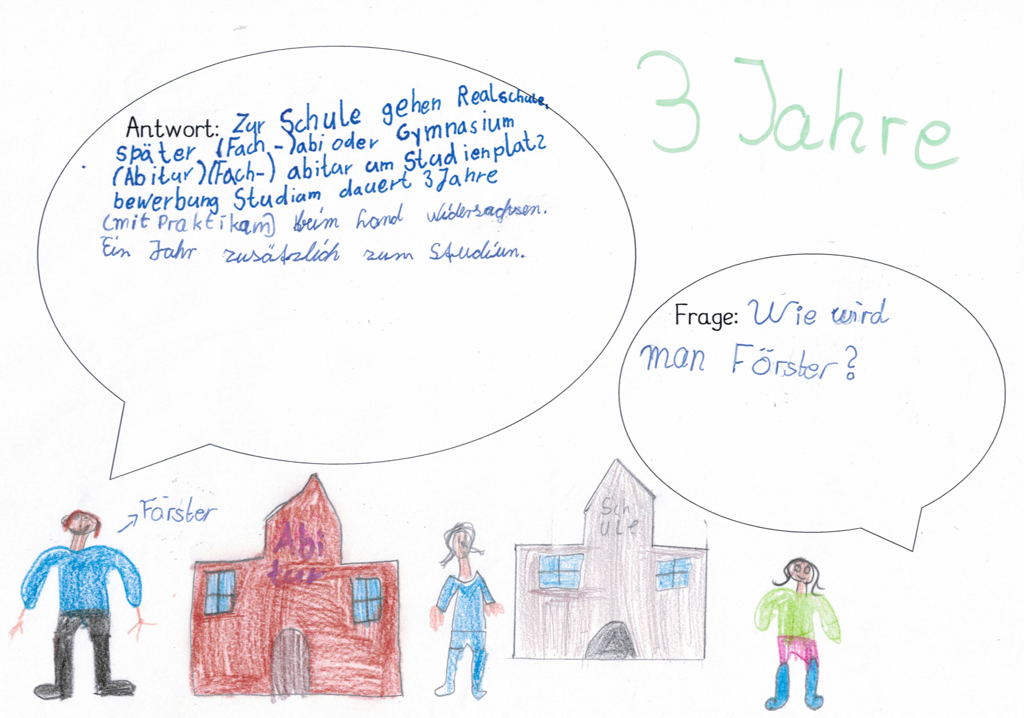 3 Jahre
Antwort: Zur Schule gehen Realschule,
später (Fach-)abi oder Gymnasium
(Abitur)(Fach-) abitur um Studienplatz
bewerbung Studium dauert 3 Jahre
(mit Praktikum) beim Land Widersachsen.
Ein Jahr zusätzlich zum Studium.
Frage: Wie wird
man Förster?
Färster
Abi
tur
Sch
ule